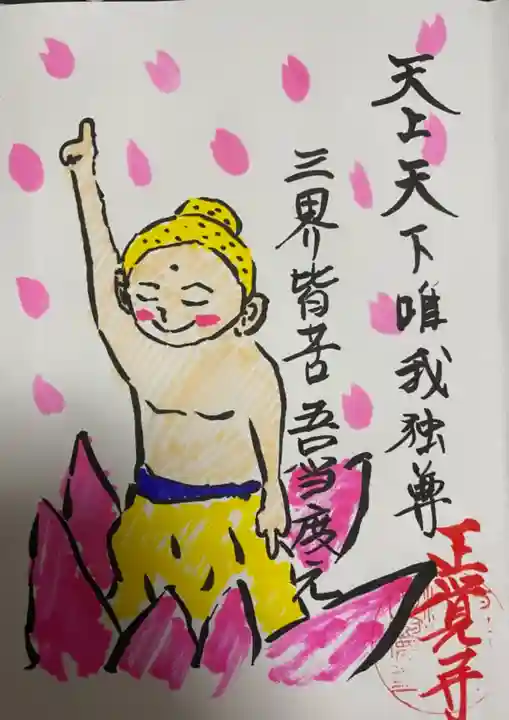 天上天下唯我独尊
三界皆苦 吾当度之
正覚寺